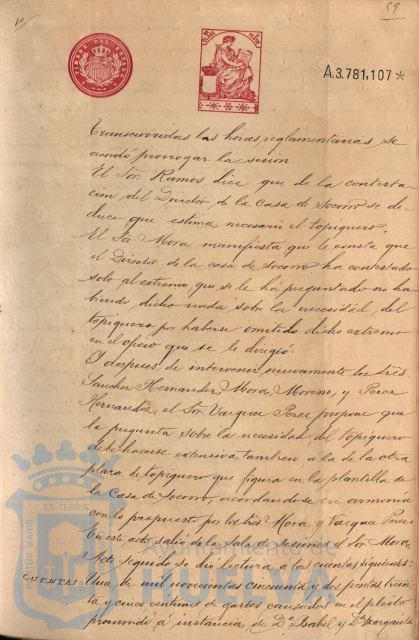 59
A.3.781,107*
Transcurridas las horas reglamentarias se
acordó prorrogar la sesion
El Sor. Ramos dice que de la contesta
cion del Director de la Casa de Socorro se de
duce que estima necesario el topiquero.
El Sor. Mora manifiesta que le consta que
el Director de la casa de socorro ha contestado
solo al extremo que se le ha preguntado no ha
biendo dicho nada sobre la necesidad del
topiquero por haberse omitido dicho extremo
en el oficio que se le dirigió.
Y despues de intervenir nuevamente los Sres.
Sanchez Hernandez, Mora, Moreno, y Perez
Hernandez, el Sor. Vazquez Perez propone que
la pregunta sobre la necesidad del topiquero
debe hacerse extensiva tambien a la de la otra
plaza de topiquero que figura en la plantilla de
la Casa de Socorro, acordandose en armonia
con lo propuesto por los Sres. Mora y Vazquez Perez.
En este acto salió de la Sala de sesiones el Sor. Mora.
Acto seguido se dió lectura a las cuentas siguientes:
CUENTAS Una de mil novecientas cincuenta y dos pesetas trein
ta y cinco centimos de gastos causados en el pleito
promovido á instancia de Dª Isabel y Dª Margarita
Ayuntamiento de
HUELVA
PORTUS MARIS ET TERRAE